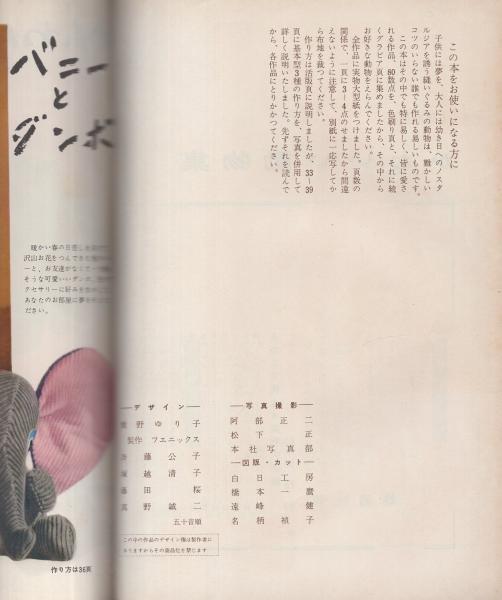 この本をお使いになる方に
子供には夢を、大人には幼き日へのノスタ
ルジアを誘う縫いぐるみの動物は、難かしい
コツのいらない誰でも作れる易しいものです。
この本はその中でも特に易しく、皆に愛さ
れる作品、60数点を一色刷り頁と、それに続
くグラビア頁に集めましたから、その中から
お好きな動物をえらんでください。
全作品に実物大型紙をつけました。頁数の
関係で、一頁に3～4点のせましたから間違
えないように注意して、別紙に一応写してか
ら布地を裁つてください。
作り方は活版頁に説明しましたが、33～39
頁に基本型3種の作り方を、写真を併用して
詳しく説明いたしました。先ずそれを読んで
から、各作品にとりかかつてください。
バニー
と
ダンボ
暖かい春の日差しを
沢山お花をつんできた
ーと、お友達がなくて
そうな可愛いいダンボ、
クセサリーに好みを
あなたのお部屋に夢を
ださい。
作り方は36頁
―デザイン―
野ゆり子
製作 フエニックス
藤公子
塚越清子
藤田 桜
真野誠二
五十音順
この中の作品のデザイン権は製作者に
ありますからその商品化を禁じます
―写真撮影―
阿部正二
松下 正
本社写真部
―図版・カット―
白日工房
橋本一麿
遠峰 健
名柄禎子